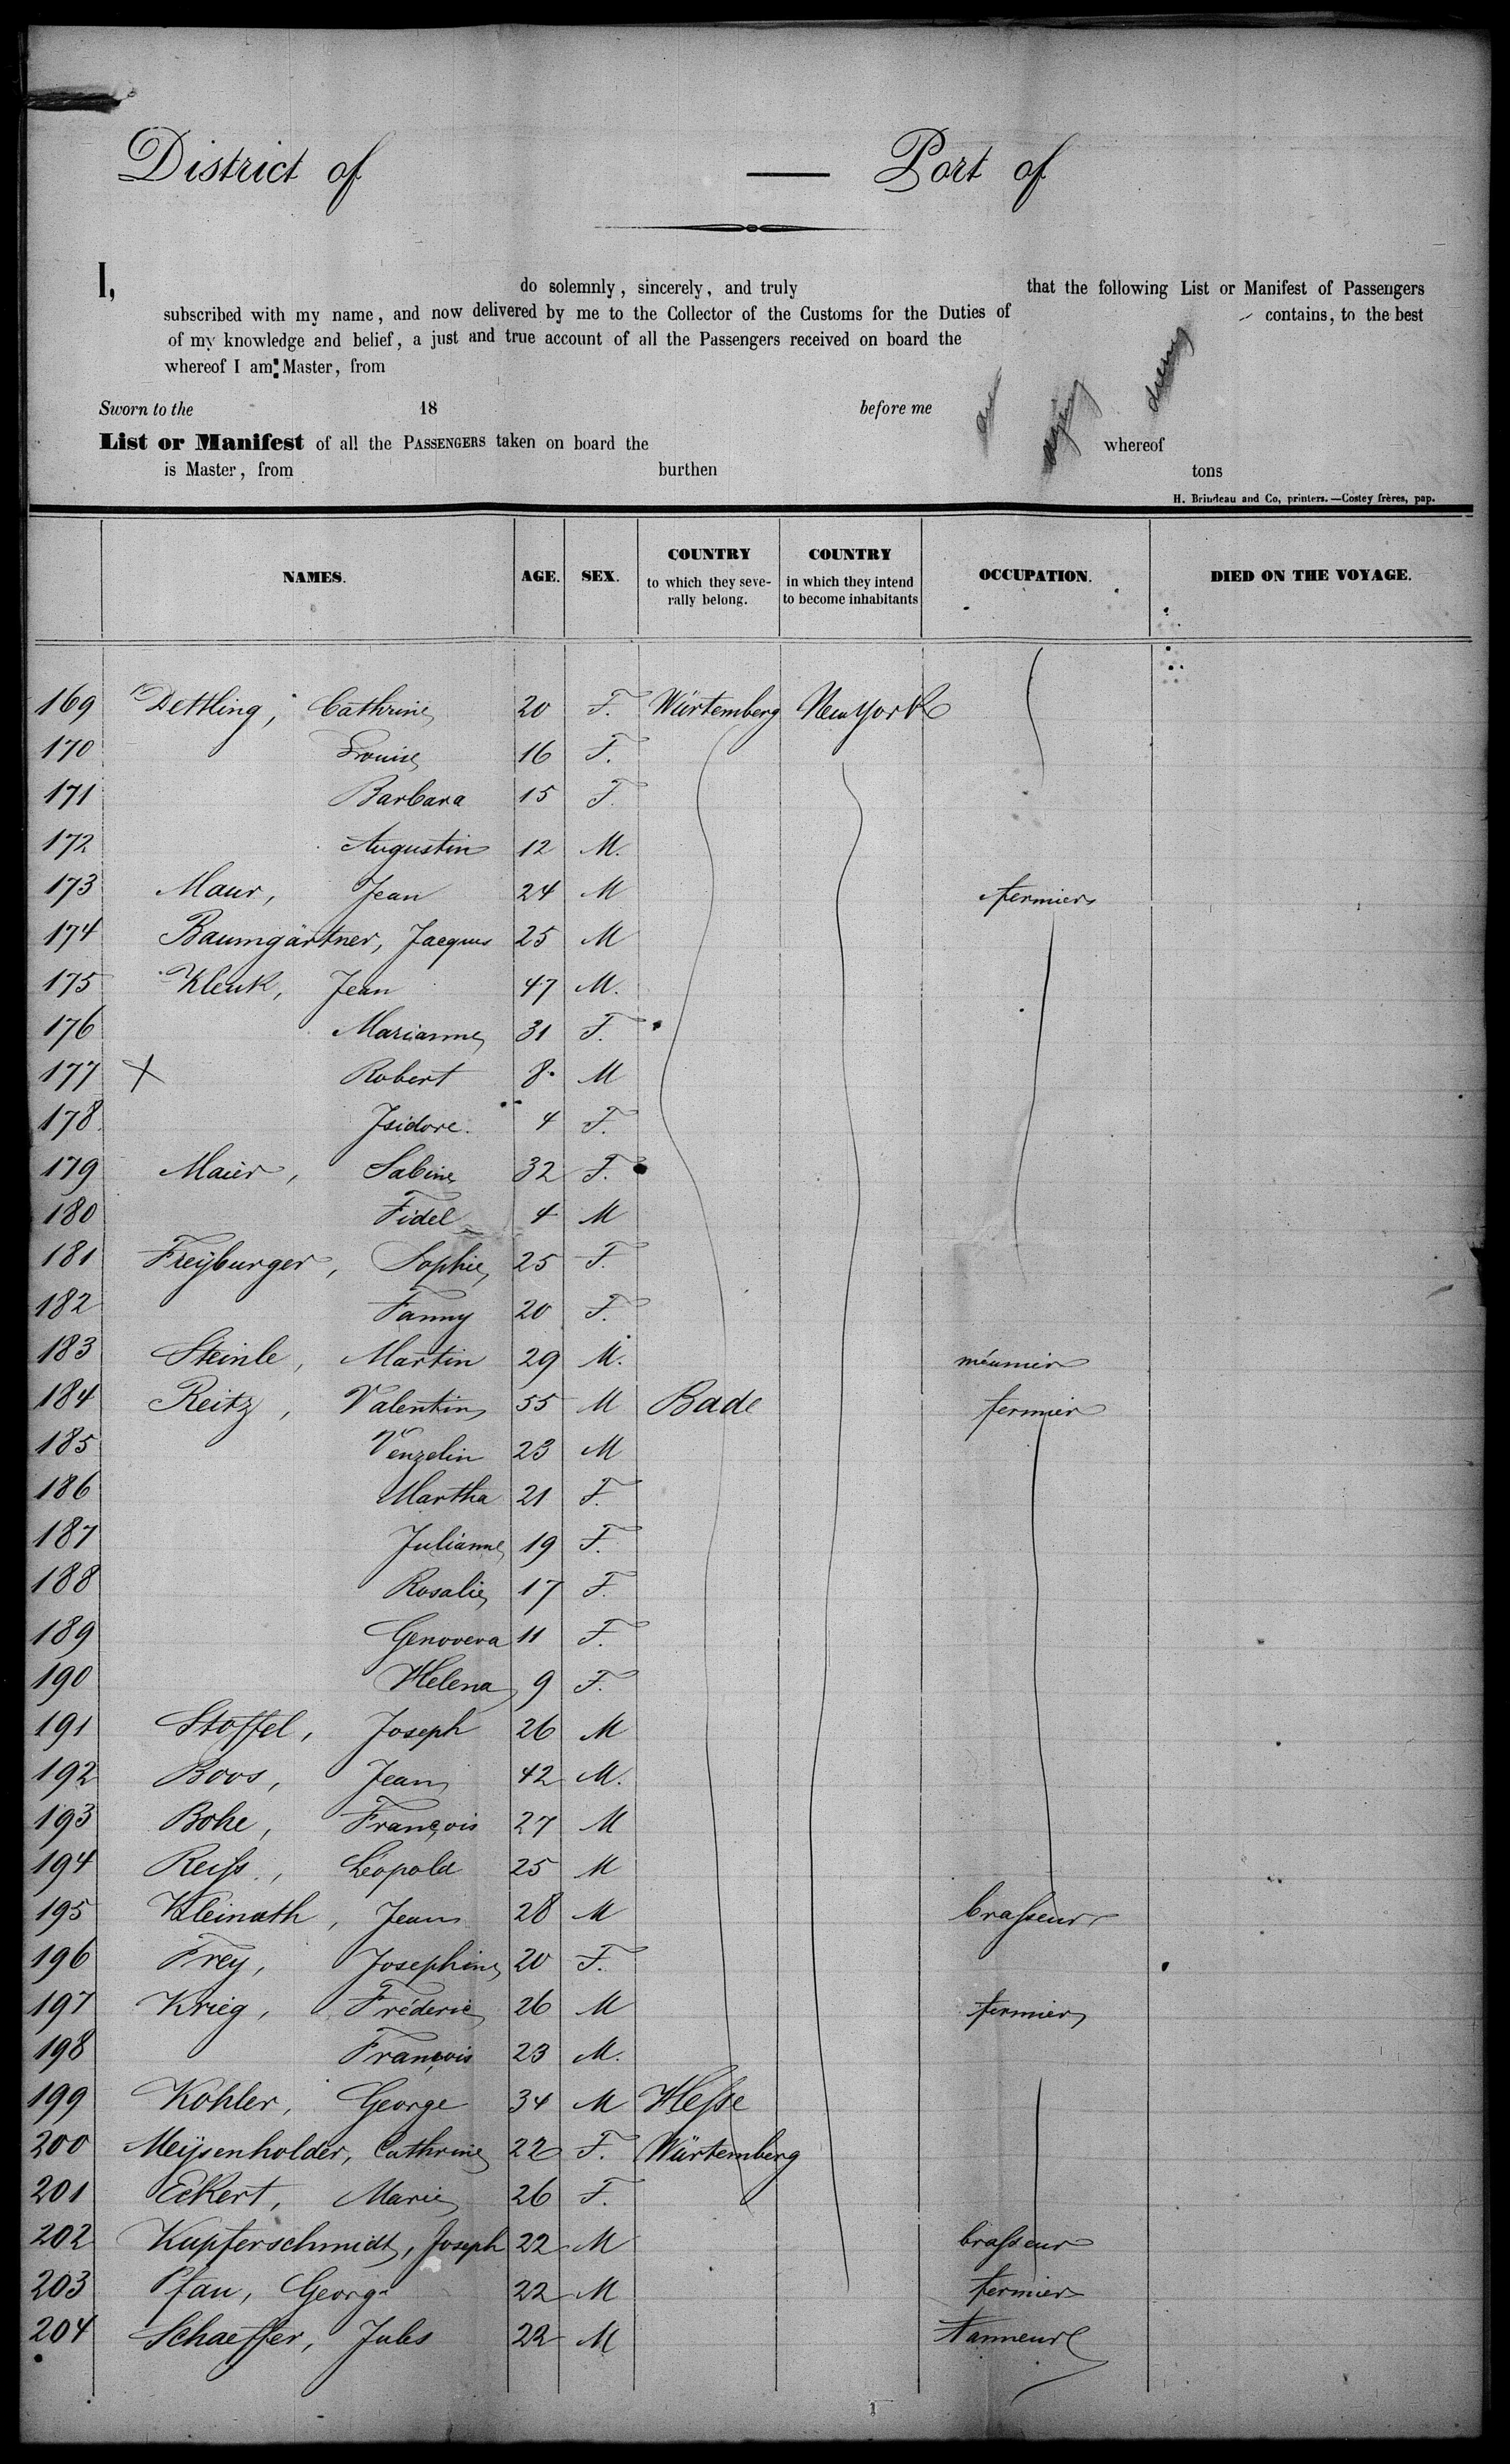 District of — Port of
I, do solemnly, sincerely, and truly that the following List or Manifest of Passengers
subscribed with my name, and now delivered by me to the Collector of the Customs for the Duties of contains, to the best
of my knowledge and belief, a just and true account of all the Passengers received on board the
whereof I am Master, from
Sworn to the 18 before me
List or Manifest of all the PASSENGERS taken on board the whereof
is Master, from burthen tons
H. Brindeau and Co, printers.—Costey frères, pap.
NAMES. AGE. SEX. COUNTRY to which they seve-rally belong. COUNTRY in which they intend to become inhabitants OCCUPATION. DIED ON THE VOYAGE.
169 Dettling, Cathrine 20 F. Würtemberg New York
170 Louise 16 F.
171 Barbara 15 F.
172 Augustin 12 M.
173 Maur, Jean 24 M fermier
174 Baumgärtner, Jacques 25 M
175 Klenk, Jean 47 M.
176 Marianne 31 F.
177 X Robert 8. M
178 Isidore. 4 F.
179 Maier, Sabine 32 F.
180 Fidel 4 M
181 Freÿburger, Sophie 25 F.
182 Fanny 20 F.
183 Steinle, Martin 29 M. meunier
184 Reitz, Valentin 55 M Bade fermier
185 Venzelin 23 M
186 Martha 21 F.
187 Julianne 19 F.
188 Rosalie 17 F.
189 Genovera 11 F.
190 Helena 9 F.
191 Stoffel, Joseph 26 M
192 Boos, Jean 42 M.
193 Bohe, François 27 M
194 Reiſs, Léopold 25 M
195 Kleinath, Jean 28 M braſseur
196 Frey, Josephine 20 F.
197 Krieg, Fréderic 26 M fermier
198 François 23 M.
199 Kohler, George 34 M Heſse
200 Meÿsenholder, Cathrine 22 F. Würtemberg
201 Eckert, Marie 26 F.
202 Kupferschmidt, Joseph 22 M braſseur
203 Pfau, George 22 M fermier
204 Schaeffer, Jules 22 M tanneur